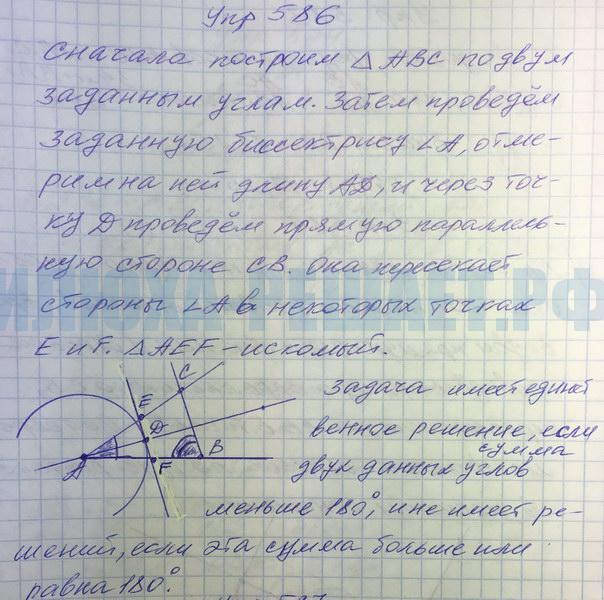 Упр 586
Сначала построим △ АВС по двум
заданным углам. Затем проведём
заданную биссектрису ∠А, отме-
рим на ней длину АD, и через точ-
ку D проведём прямую параллель-
ную стороне СВ. Она пересекает
стороны ∠А в некоторых точках
Е и F. △ AEF - искомый.
C
E
D
A
F
B
Задача имеет единст
венное решение, если
сумма
двух данных углов
меньше 180°, и не имеет ре-
шений, если эта сумма больше или
равна 180°.
ИЛЮХА-РЕШАЕТ.РФ